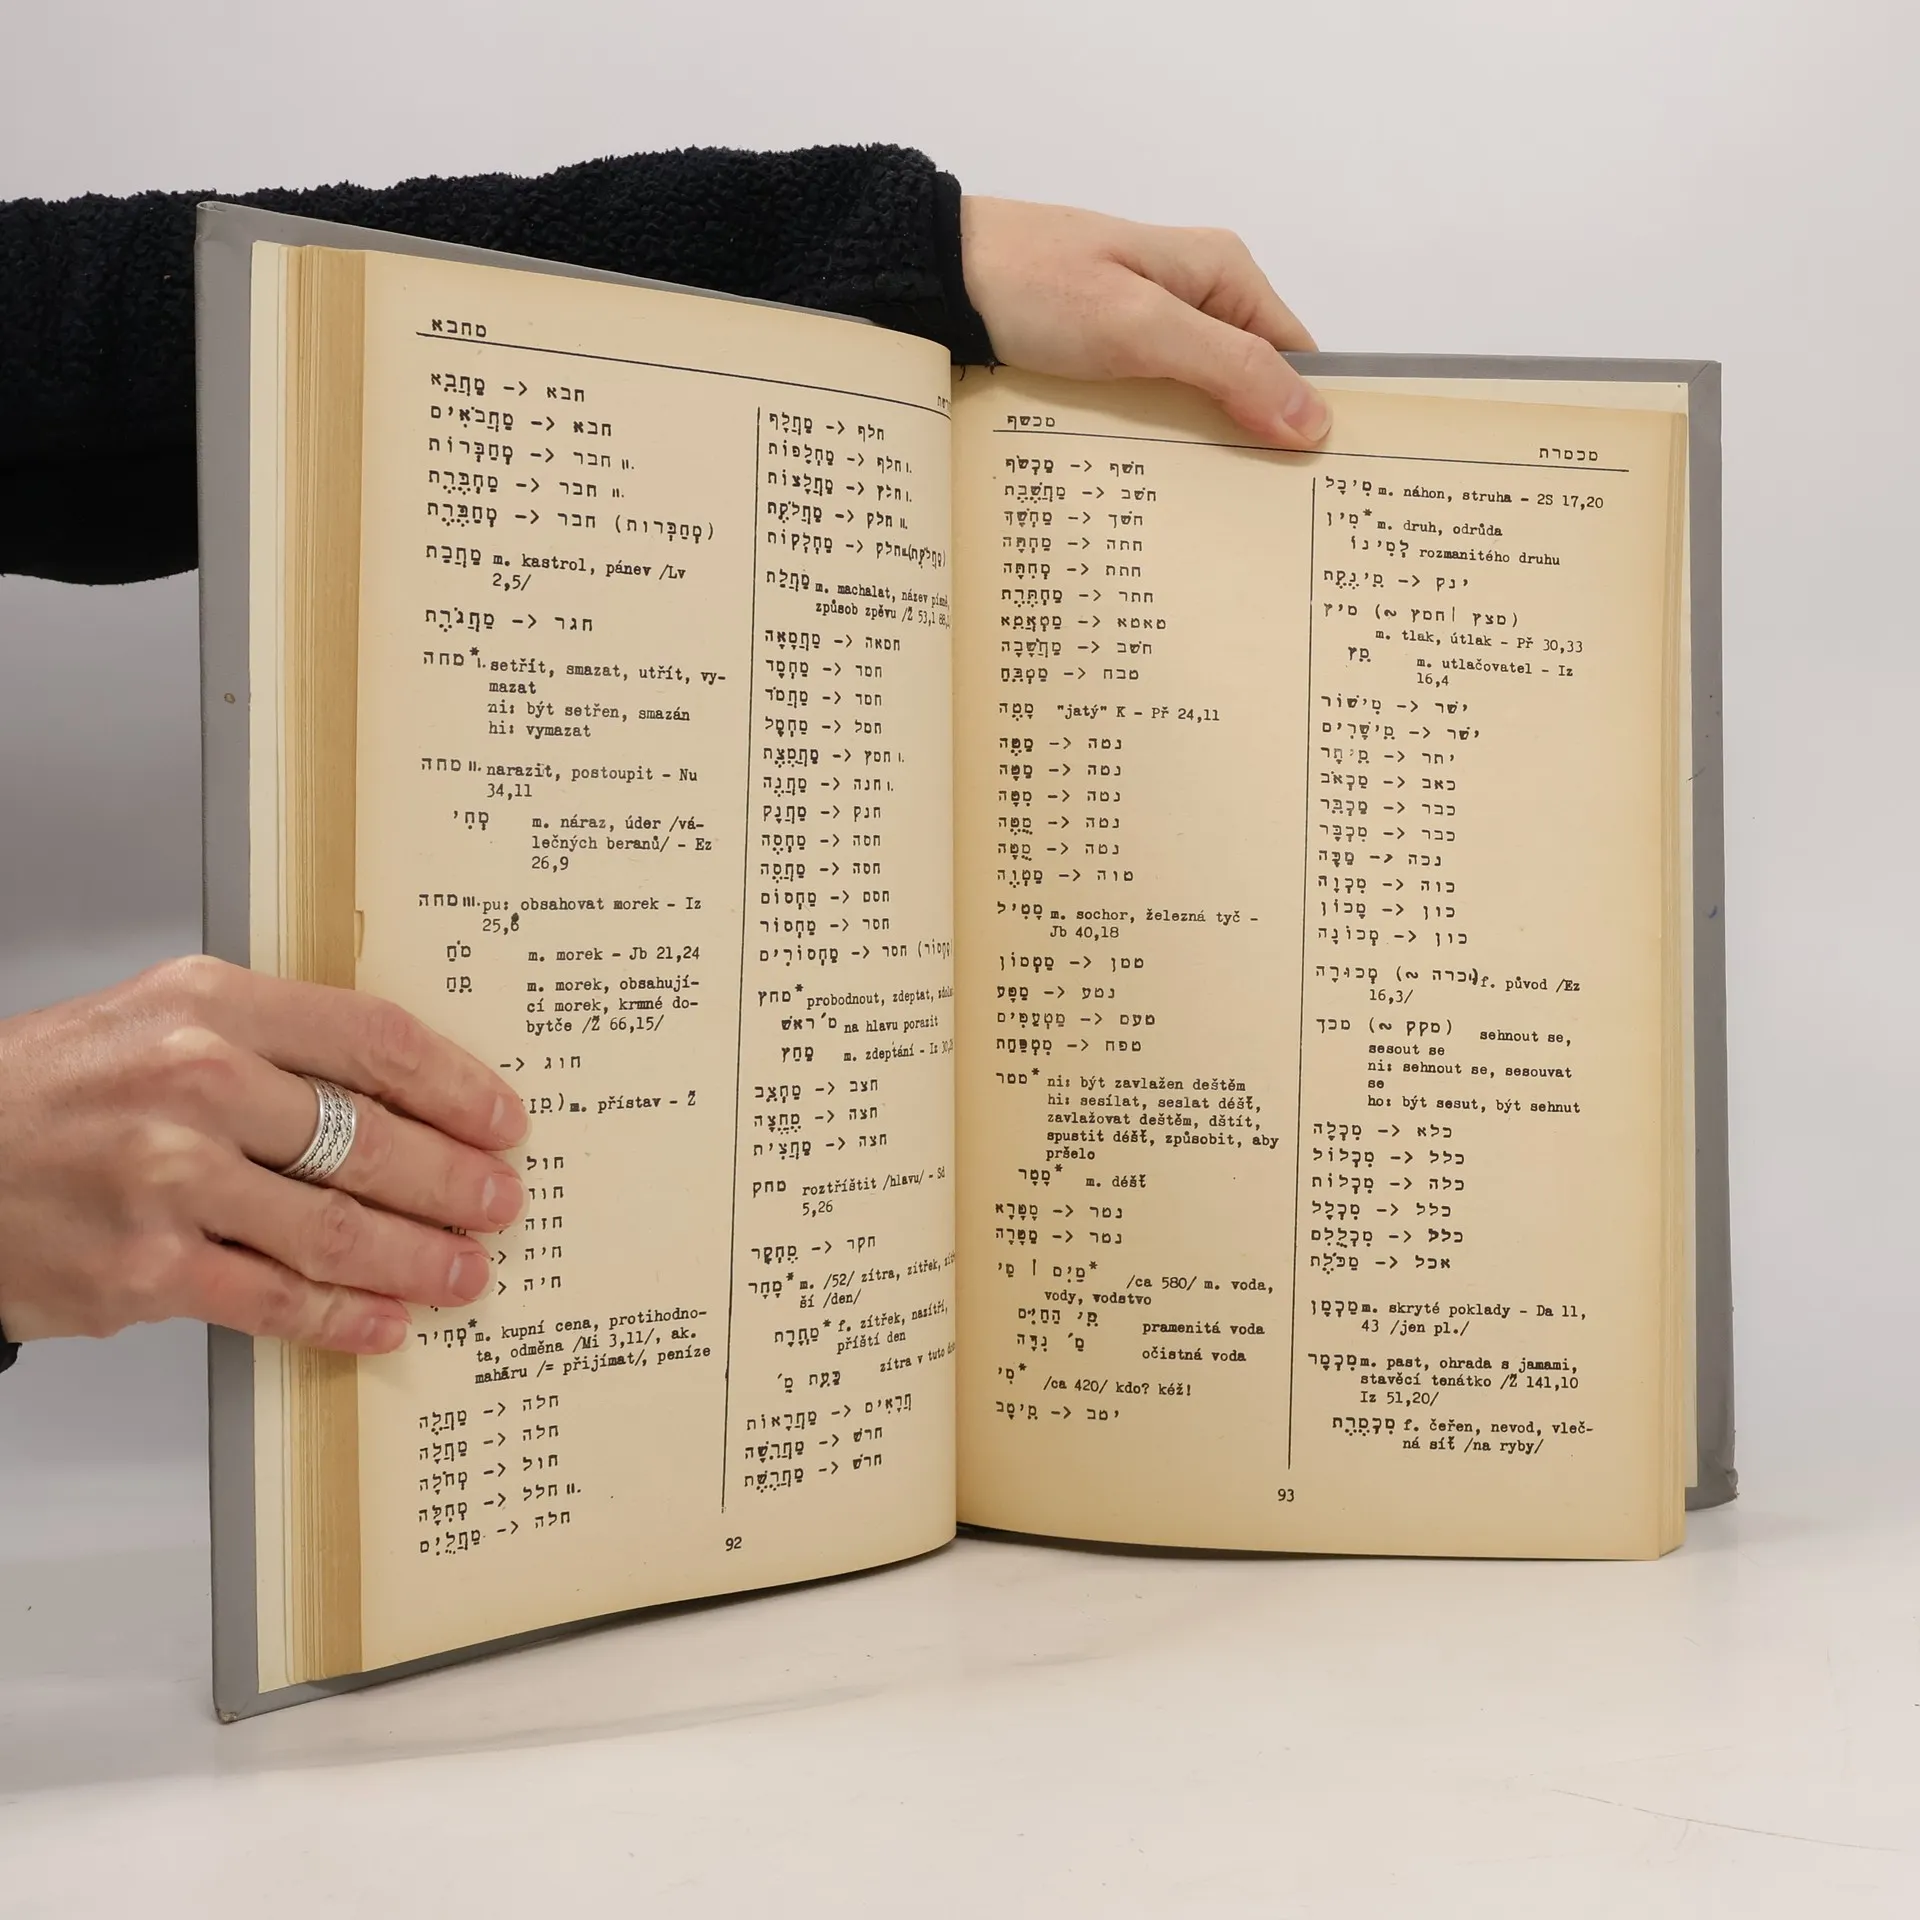 מחבא
מַחֲבֵא <- חבא
מַחֲבֹאִים <- חבא
מְחַבְּרוֹת <- חבר II.
מַחְבֶּרֶת <- חבר II.
מְחַבֶּרֶת <- חבר (מְחַבְּרוֹת)
מַחֲבַת m. kastrol, pánev /Lv
2,5/
מַחֲגֹרֶת <- חגר
מחה* I. setřít, smazat, utřít, vy-
mazat
ni: být setřen, smazán
hi: vymazat
מחה II. narazit, postoupit - Nu
34,11
מְחִי m. náraz, úder /vá-
lečných beranů/ - Ez
26,9
מחה III. pu: obsahovat morek - Iz
25,6
מֹחַ m. morek - Jb 21,24
מֵחַ m. morek, obsahují-
cí morek, krmné do-
bytče /Ž 66,15/
<- חוג
m. přístav - Ž
חול
חזה
<- חיה
<- חיה
מְחִיר* m. kupní cena, protihodno-
ta, odměna /Mi 3,11/, ak.
maháru /= přijímat/, peníze
מַחֲלֶה <- חלה
מַחֲלָה <- חלה
מְחֹלָה <- חול
מְחִלָּה <- חלל II.
מַחֲלֻיִים <- חלה
מַחֲלָף <- חלף
מַחְלָפוֹת <- חלף I.
מַחֲלָצוֹת <- חלץ I.
מַחֲלֹקֶת <- חלק II.
מַחְלְקוֹת <- חלק II. (מַחֲלֹקֶת)
מַחֲלַת m. machalat, název písně,
způsob zpěvu /Ž 53,1 88,1
מַחֲמָאָה <- חמאה
מַחְמָד <- חמד
מַחֲמֹד <- חמד
מַחְמָל <- חמל
מַחְמֶצֶת <- חמץ I.
מַחֲנֶה <- חנה I.
מַחֲנָק <- חנק
מַחְסֶה <- חסה
מַחֲסֶה <- חסה
מַחְסוֹם <- חסם
מַחְסוֹר <- חסר
מַחְסוֹרִים <- חסר (מַחְסוֹר)
מחץ* probodnout, zdeptat,
מ׳ ראש na hlavu porazit
מַחַץ m. zdeptání - Iz 30,26
מַחְצֵב <- חצב
מֶחֱצָה <- חצה
מַחֲצִית <- חצה
מחק roztříštit /hlavu/ - Sd
5,26
מֶחְקָר <- חקר
מָחָר* m. /52/ zítra, zítřek,
ší /den/
מָחֳרָת* f. zítřek, nazítří,
příští den
כָּעֵת מ׳ zítra v tuto
מַחֲרָאוֹת <- חֲרָאִים
מַחֲרֵשָׁה <- חרשׁ
מַחֲרֶשֶׁת <- חרשׁ
92
מכשף
מכמרת
מַחְשֹׂף <- חשׂף
מַחֲשֶׁבֶת <- חשׁב
מַחְשָׁךְ <- חשׁך
מַחְתָּה <- חתה
מְחִתָּה <- חתת
מַחְתֶּרֶת <- חתר
מַטְאֲטֵא <- טאטא
מַחֲשָׁבָה <- חשׁב
מַטְבֵּחַ <- טבח
מָטֶה "jatý" K - Př 24,11
מַטֶּה <- נטה
מַטָּה <- נטה
מִטָּה <- נטה
מֻטֶּה <- נטה
מֻטָּה <- נטה
מַטְוֶה <- טוה
מָטִיל m. sochor, železná tyč -
Jb 40,18
מַטְמוֹן <- טמן
מַטָּע <- נטע
מַטְעַמִּים <- טעם
מִטְפַּחַת <- טפח
מטר* ni: být zavlažen deštěm
hi: sesílat, seslat déšť,
zavlažovat deštěm, dštít,
spustit déšť, způsobit, aby
pršelo
מָטָר* m. déšť
מַטָּרָא <- נטר
מַטָּרָה <- נטר
מַיִם | מַי* /ca 580/ m. voda,
vody, vodstvo
מֵי הַחַיִּים pramenitá voda
מ׳ נִדָּה očistná voda
מִי* /ca 420/ kdo? kéž!
מֵיטָב <- יטב
מִיכָל m. náhon, struha - 2S 17,20
מִין* m. druh, odrůda
לְמִינוֹ rozmanitého druhu
מֵינֶקֶת <- ינק
מיץ (~ מצץ | חמץ)
m. tlak, útlak - Př 30,33
מֵץ m. utlačovatel - Iz
16,4
מִישׁוֹר <- ישׁר
מֵישָׁרִים <- ישׁר
מֵיתָר <- יתר
מַכְאֹב <- כאב
מַכְבֵּר <- כבר
מִכְבָּר <- כבר
מַכָּה <- נכה
מִכְוָה <- כוה
מָכוֹן <- כון
מְכוֹנָה <- כון
מְכוּרָה (~ כרה) f. původ /Ez
16,3/
מכך (~ מקק) sehnout se,
sesout se
ni: sehnout se, sesouvat
se
ho: být sesut, být sehnut
מִכְלָה <- כלא
מִכְלוֹל <- כלל
מִכְלוֹת <- כלה
מִכְלָל <- כלל
מַכְלֻלִם <- כלל
מַכֹּלֶת <- אכל
מִכְמָן m. skryté poklady - Da 11,
43 /jen pl./
מִכְמָר m. past, ohrada s jamami,
stavěcí tenátko /Ž 141,10
Iz 51,20/
מִכְמֶרֶת f. čeřen, nevod, vleč-
ná síť /na ryby/
93